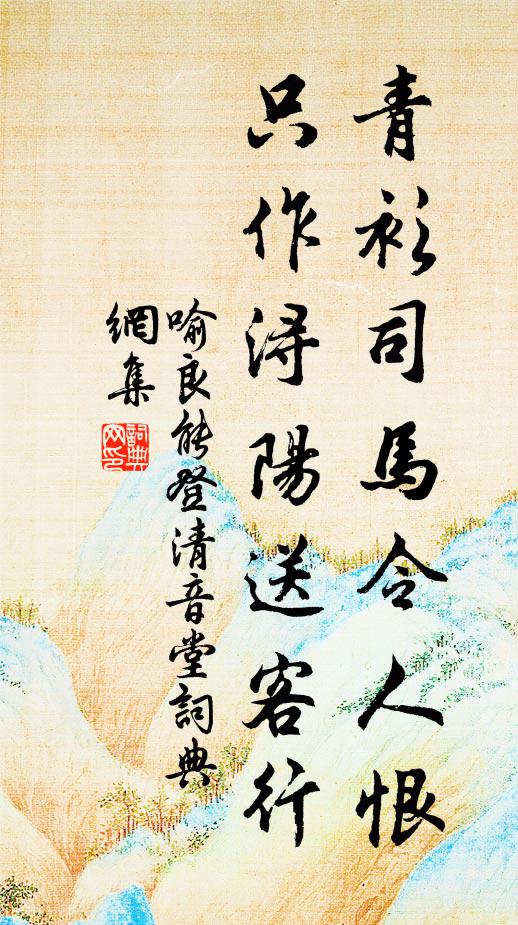 青衫司馬令人恨
只作潯陽送客行
喻良能登清音堂詞典
網集
詞典
网印